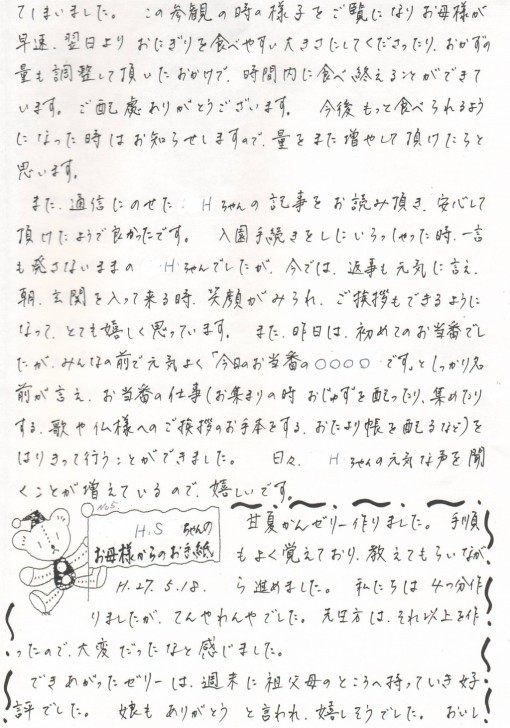 てしまいました。 この参観の時の様子をご覧になりお母様が
早速、翌日より おにぎりを食べやすい大きさにしてくださったり、おかずの
量も調整して頂いたおかげで、時間内に食べ終えることができて
います。 ご配慮ありがとうございます。 今後 もっと食べられるよう
になった時はお知らせしますので、量をまた増やして頂けたらと
思います。
また、通信にのせた Hちゃんの記事をお読み頂き、安心して
頂けたようで良かったです。 入園手続きをしにいらっしゃった時、一言
も発さないままの Hちゃんでしたが、今では、返事も元気に言え、
朝、玄関を入って来る時、笑顔がみられ、ご挨拶もできるように
なって、とても嬉しく思っています。 また、昨日は、初めてのお当番でし
たが、みんなの前で元気よく「今日のお当番の○○○○です」としっかり名
前が言え、お当番の仕事(お集まりの時 おじゅずを配ったり、集めたり
する、歌や仏様へのご挨拶のお手本をする、おたより帳を配るなど)を
はりきって行うことができました。 日々、 Hちゃんの元気な声を聞
くことが増えているので、嬉しいです。
No.5
H.S ちゃんの
お母様からのお手紙
H.27.5.18.
甘夏かんゼリー作りました。 手順
もよく覚えており、教えてもらいなが
ら進めました。 私たちは 4つ分作
りましたが、てんやわんやでした。 先生方は、それ以上を作
ったので、大変だったなと感じました。
できあがったゼリーは、週末に祖父母のところへ持っていき好
評でした。 娘も ありがとう と言われ、嬉しそうでした。 おいし